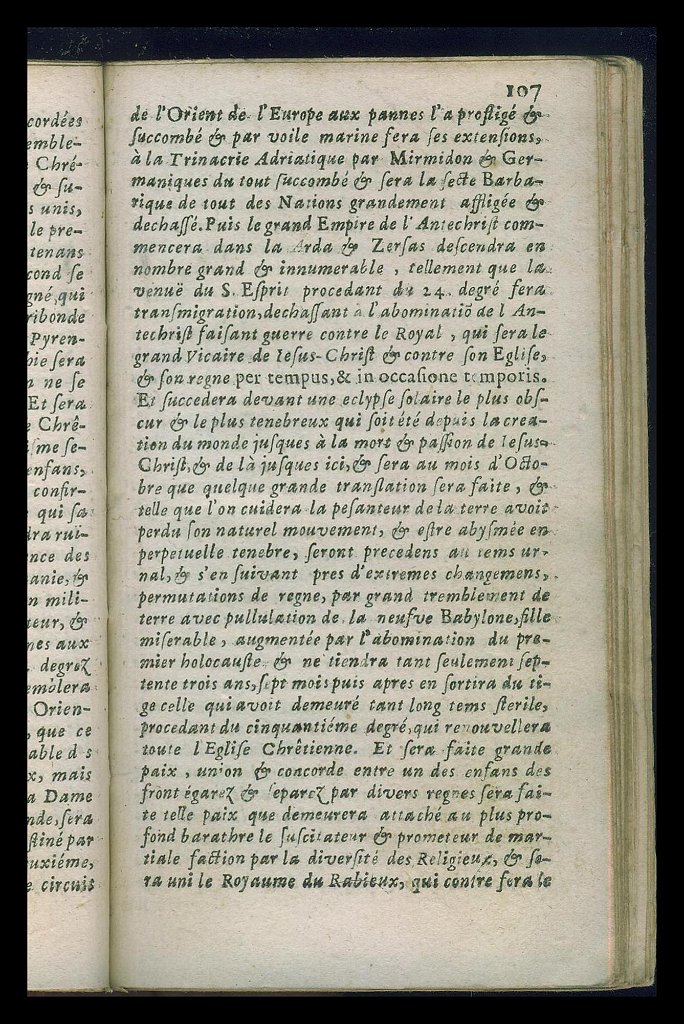 107
cordées
emble-
Chré-
& su-
s unis,
le pre-
tenans
cond se
gné, qui
ribonde
Pyren-
bie sera
n ne se
Et sera
e Chrê-
isme se-
enfans,
confir-
qui sa
dra ruï-
nce des
anie, &
n mili-
teur, &
nes aux
degrez
emolera
Orien-
, que ce
able d s
x, mais
a Dame
nde, sera
stiné par
uxiéme,
e circuis
de l'Orient de l'Europe aux pannes l'a profligé &
succombé & par voile marine fera ses extensions,
à la Trinacrie Adriatique par Mirmidon & Ger-
maniques du tout succombé & sera la secte Barba-
rique de tout des Nations grandement affligée &
dechassé. Puis le grand Empire de l'Antechrist com-
mencera dans la Arda & Zersas descendra en
nombre grand & innumerable, tellement que la
venuë du S. Esprit procedant du 24. degré fera
transmigration, dechassant à l'abominatiō de l An-
techrist faisant guerre contre le Royal, qui sera le
grand Vicaire de Iesus-Christ & contre son Eglise,
& son regne per tempus, & in occasione temporis.
Et succedera devant une eclypse solaire le plus obs-
cur & le plus tenebreux qui soit été depuis la crea-
tion du monde jusques à la mort & passion de Iesus-
Christ, & de là jusques ici, & sera au mois d'Octo-
bre que quelque grande translation sera faite, &
telle que l'on cuidera la pesanteur de la terre avoir
perdu son naturel mouvement, & estre abysmée en
perpetuelle tenebre, seront precedens au tems ur-
nal, & s'en suivant pres d'extremes changemens,
permutations de regne, par grand tremblement de
terre avec pullulation de la neufve Babylone, fille
miserable, augmentée par l'abomination du pre-
mier holocauste & ne tiendra tant seulement sep-
tente trois ans, sept mois puis apres en sortira du ti-
ge celle qui avoit demeuré tant long tems sterile,
procedant du cinquantiéme degré, qui renouvellera
toute l'Eglise Chrêtienne. Et sera faite grande
paix, union & concorde entre un des enfans des
front égarez & separez par divers regnes sera fai-
te telle paix que demeurera attaché au plus pro-
fond barathre le suscitateur & prometeur de mar-
tiale faction par la diversité des Religieux, & se-
ra uni le Royaume du Rabieux, qui contre fera le